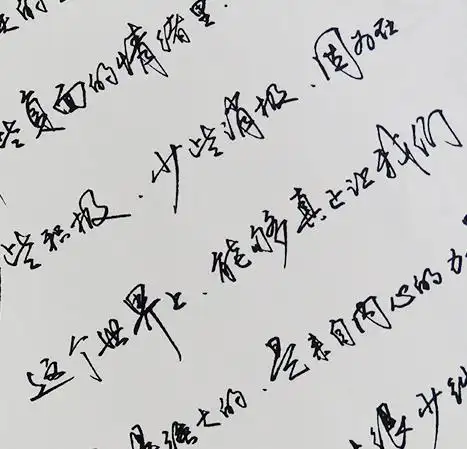 些负面的情绪里.
些积极.少些消极.因为在
这个世界上.能够真正让我们
强大的.是来自内心的力
很少